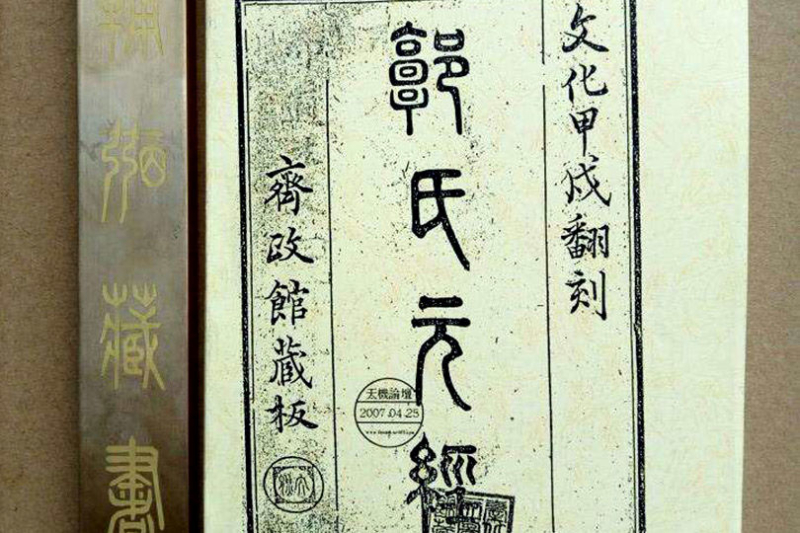 文化甲戌翻刻
郭氏元經
齊政館蔵板
天機論壇
2007.04.25
藏書